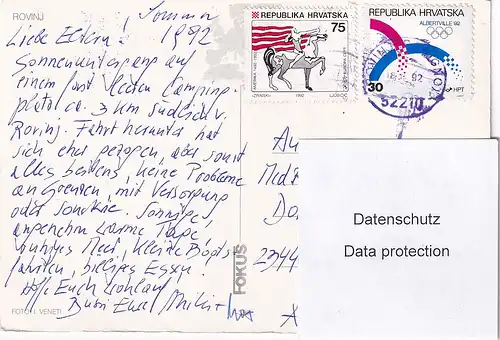 ROVINJ
Sommer
1992
Liebe Eltern!
Sonnenuntergang auf
einem fast leeren Camping-
platz ca. 3 km südlich v.
Rovinj. Fahrt herunter hat
sich eher gezogen, aber sonst
alles bestens, keine Probleme
an Grenzen, mit Versorgung
oder sonstwie. Sonnige,
angenehm warme Tage
ruhiges Meer, kleine Boots-
fahrten, billiges Essen.
Hoffe Euch wohlauf
Bussi Euer
FOTO: I. VENETI
FOKUS
REPUBLIKA HRVATSKA
75
1992
REPUBLIKA HRVATSKA
ALBERTVILLE 92
30
HPT
92
52210
Datenschutz
Data protection